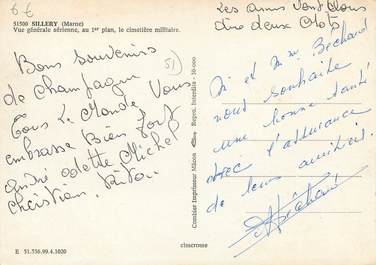 6 €
51500 SILLERY (Marne)
Vue générale aérienne, au 1er plan, le cimetière militaire.
Bons Souvenirs
de Champagne
Tous Le Monde Vous
embrasse Bien fort
andré odette Michel
christian
51)
Combier Imprimeur Mâcon
Repro. interdite - 10-000
E 51.536.99.4.1020
cimcrome
Les amis vont vous
dire deux mots
M et Mme Béchard
vous souhaite
une bonne santé
avec l'assurance
de leurs amitiés.